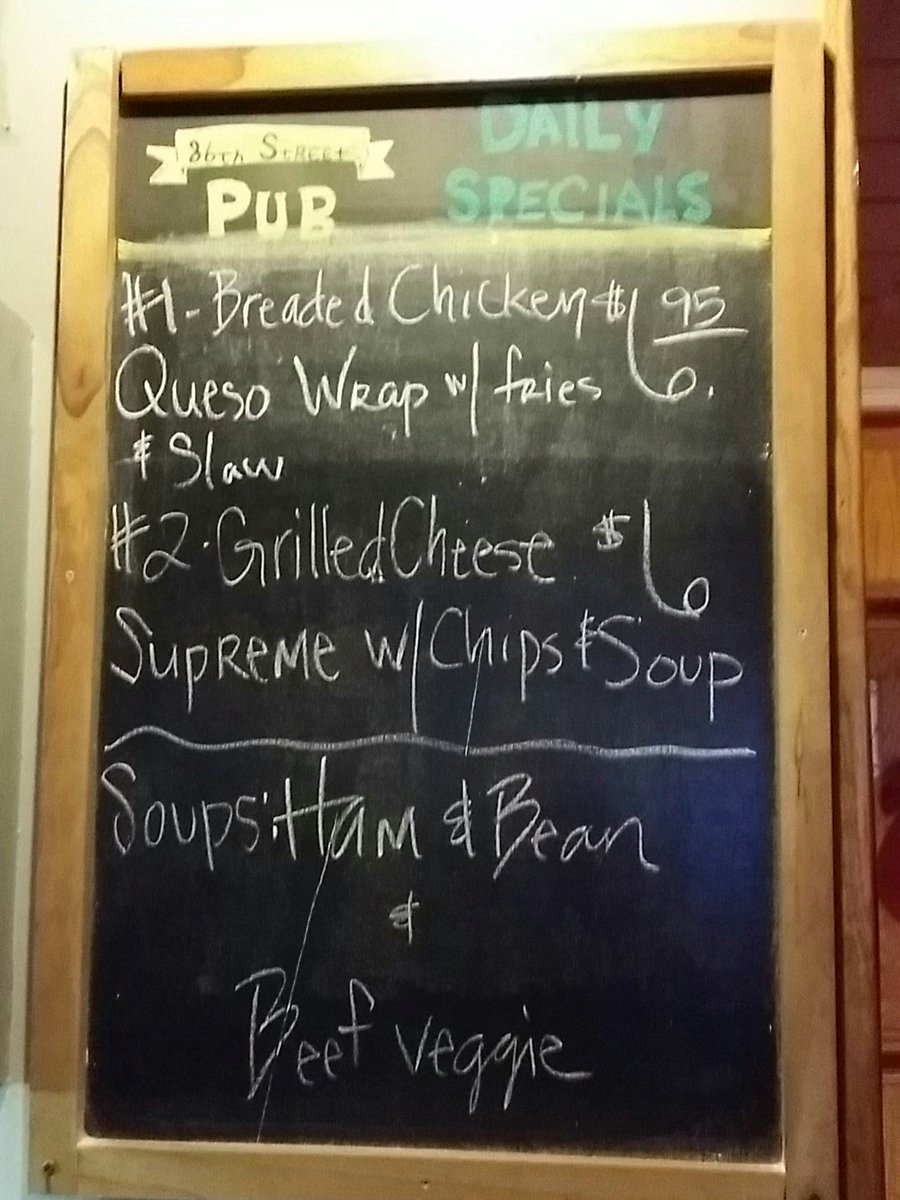 36th Street
PUB
DAILY
SPECIALS
#1-Breaded Chicken $6.95
Queso Wrap w/ fries
& Slaw
#2-Grilled Cheese $6
Supreme w/ Chips & Soup
Soups: Ham & Bean
&
Beef veggie